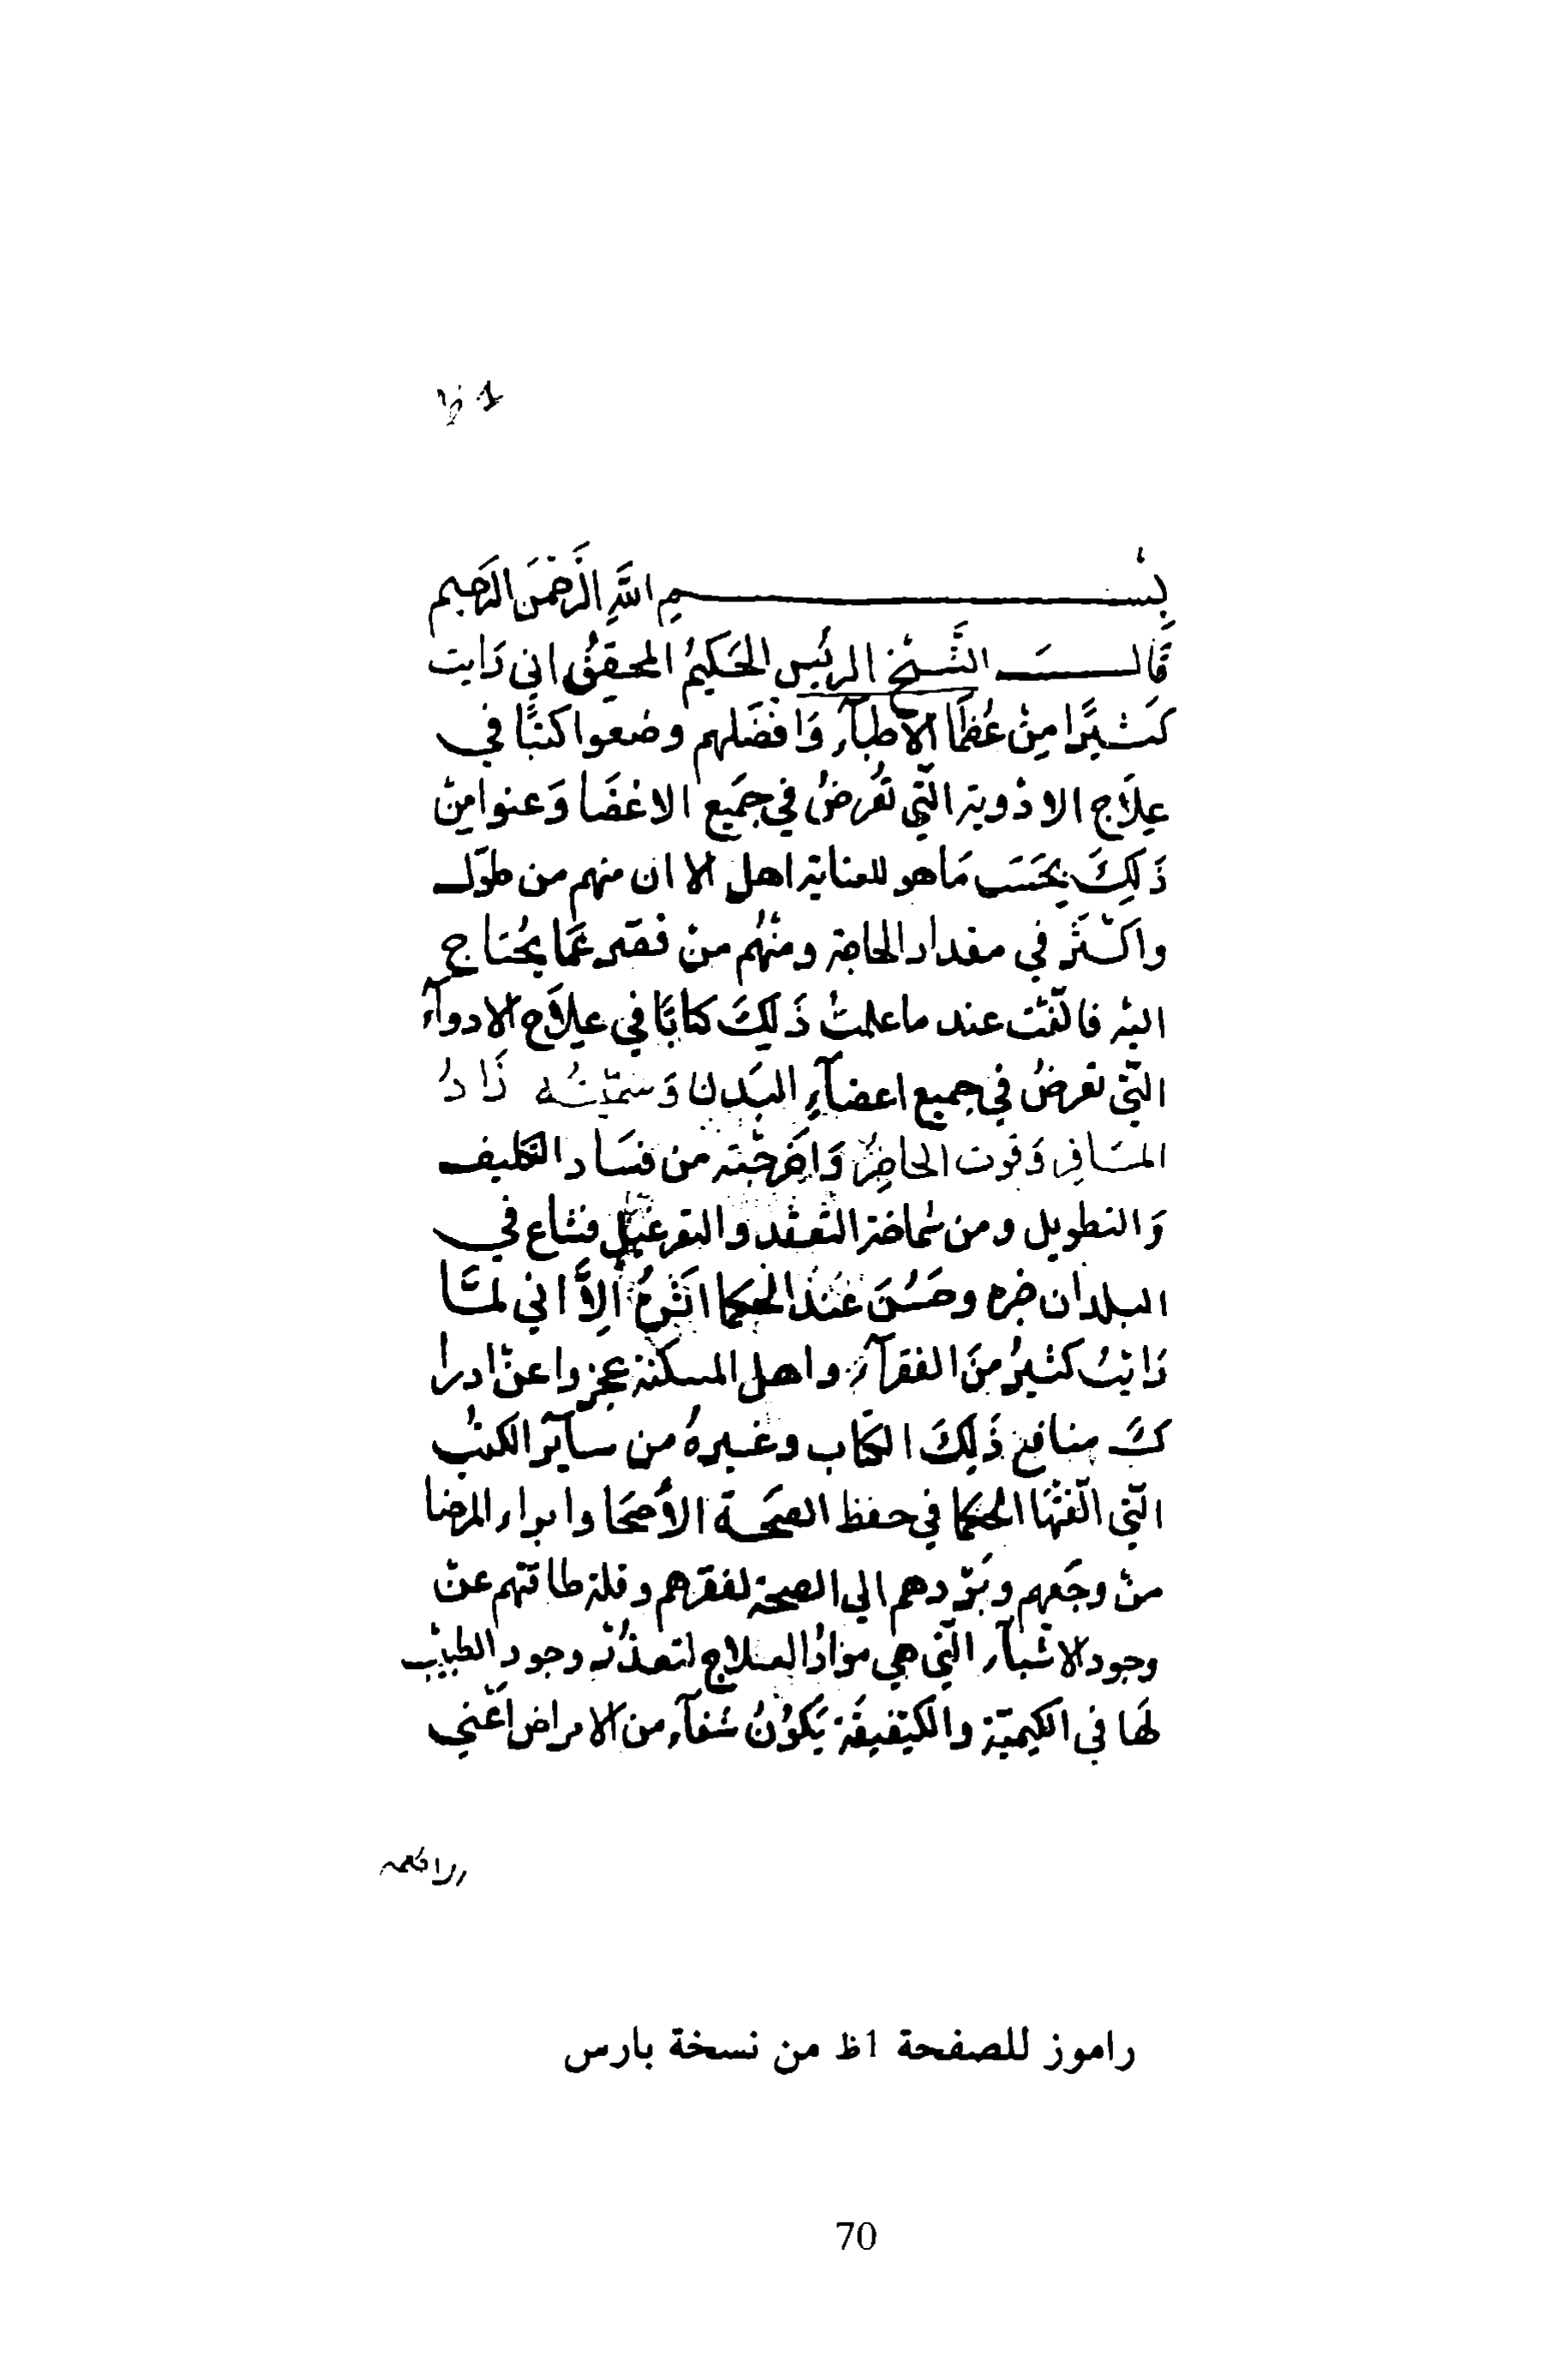 1 ظ
بِسْمِ اللَّهِ الرَّحْمَنِ الرَّحِيمِ
قَالَ الشَّيْخ الرئيس الحَكِيمُ المحقِقُ اني رَايت
كَثيرًا مِنْ عُظمَا الاطبآء وَافضَلهم وضعوا كتبًا في
عِلَاج الادْوية الَّتي تَعْرضُ في جَميع الاعْضَا وَعنوا مِنْ
ذَلِكَ بحَسَب مَا هو للعناية اهل الا ان منهم من طوّل
واكْثَر في مقدار الحاجة ومنْهُم منْ قصر عَمَا يُحتاج
اليْه فالَّفْت عند ما علمتُ ذَلِكَ كتابًا في عِلاَج الادوآء
الَّتي تعرضُ في جميع اعضآءِ البَدن وَسَمّيْتُه زَادُ
المسَافِر وَقوت الحاضِرُ وَاخرَجْته من فسَاد التكليف
وَالتطويل ومن سَماجة التعقْد والتو فشاع في
البلدان خبره وحَسُنَ عَنْدَ الحكما اثَرهُ الاَّ اني لمَّا
رَايْتُ كثيرُ منَ الفقرآء واهل المسكنة عجزوا عنْ ادرا
كَ منافع ذَلِكَ الكتاب وغيرهُ من سآير الكتب
الَّتي الَّفتْهَا الحكما في حفظ الصحَّة الأَصحَا وابراء المرضا
منْ وجَعهم و الي الصحة لفقرهم وقلة طاقتهم عنْ
وجود الاشيآء الَّتي هي موَادُ العلاج لتعذُّر وجود الطبيْب
لهَا في الكيميّة والكيْفيفَة يَكوُنُ شفآء من الامراض اعْني
راموز للصفحة 1ظ من نسخة بارس
70